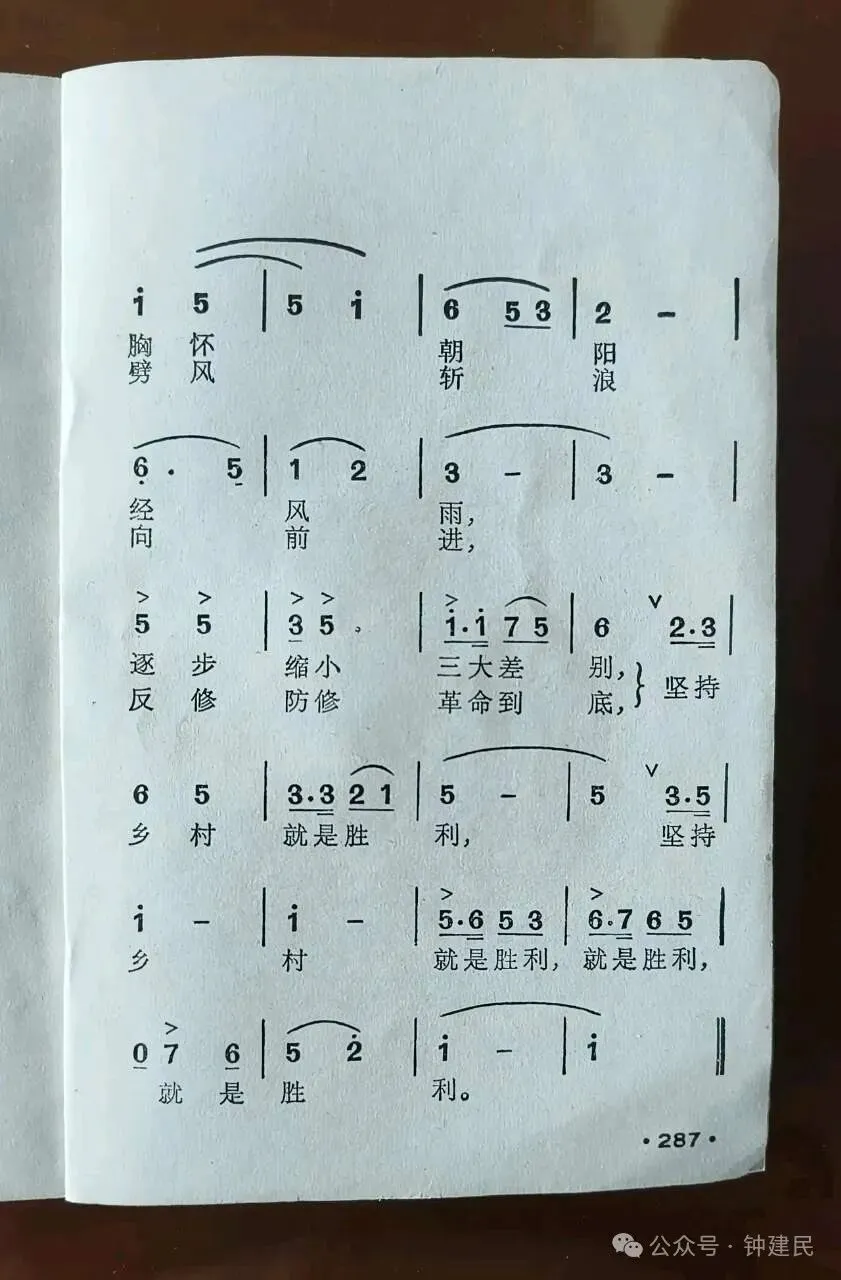 i 5 | 5 i | 6 5 3 | 2 - |
胸 怀 朝 阳
劈 风 斩 浪
6 . 5 | 1 2 | 3 - | 3 - |
经 风 雨,
向 前 进,
> > > > > ∨
5 5 | 3 5 | i . i 7 5 | 6 2 . 3 |
逐 步 缩 小 三 大 差 别,
反 修 防 修 革 命 到 底, } 坚 持
∨
6 5 | 3 . 3 2 1 | 5 - | 5 3 . 5 |
乡 村 就 是 胜 利, 坚 持
> >
i - | i - | 5 . 6 5 3 | 6 . 7 6 5 |
乡 村 就 是 胜 利, 就 是 胜 利,
>
0 7 6 | 5 2 | i - | i ‖
就 是 胜 利。
· 287 ·
公众号 · 钟建民